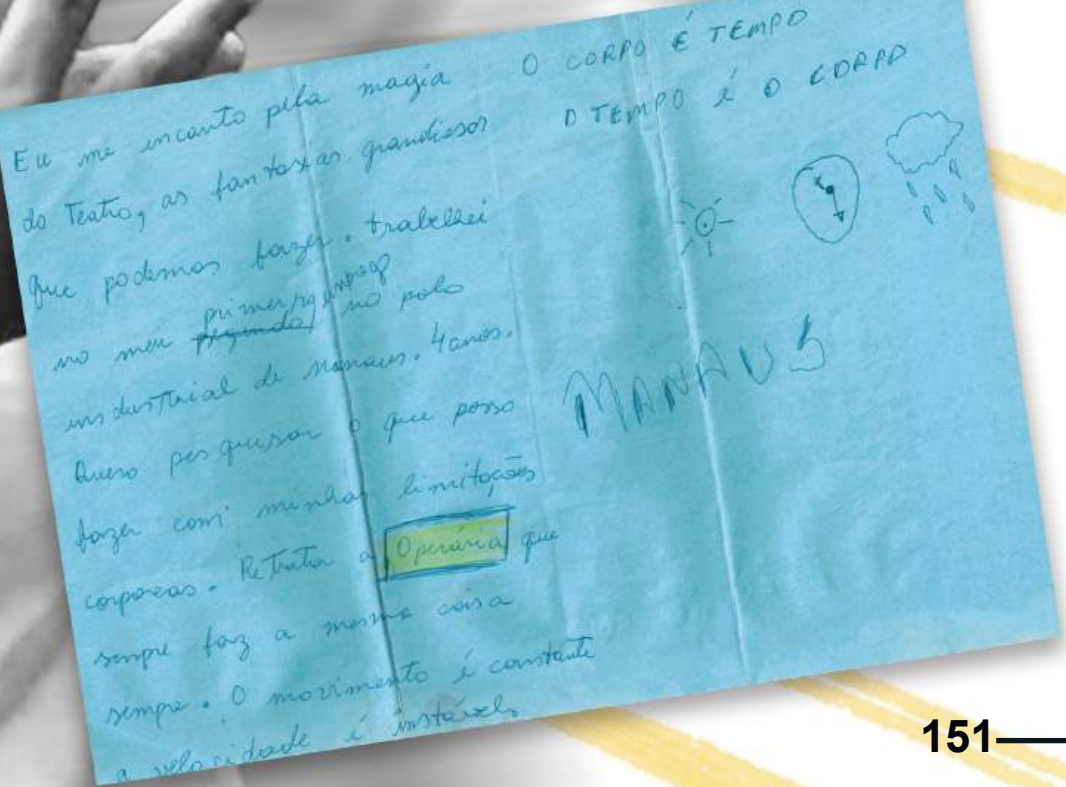 Eu me encanto pela magia
do Teatro, as fantasias grandiosas
que podemos fazer. trabalhei
primeiro emprego
no meu segundo, no polo
industrial de manaus. 4 anos.
Quero pesquisar o que posso
fazer com minhas limitações
corporeas. Retratar a Operária que
sempre faz a mesma coisa
sempre. O movimento é constante
a velocidade é instável
O CORPO É TEMPO
O TEMPO é O CORPO
MANAUS
151